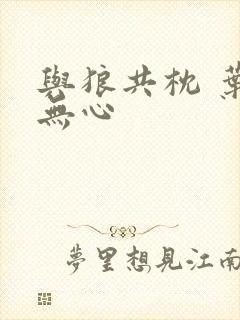 與狼共枕 葉
無心
夢里想見江南